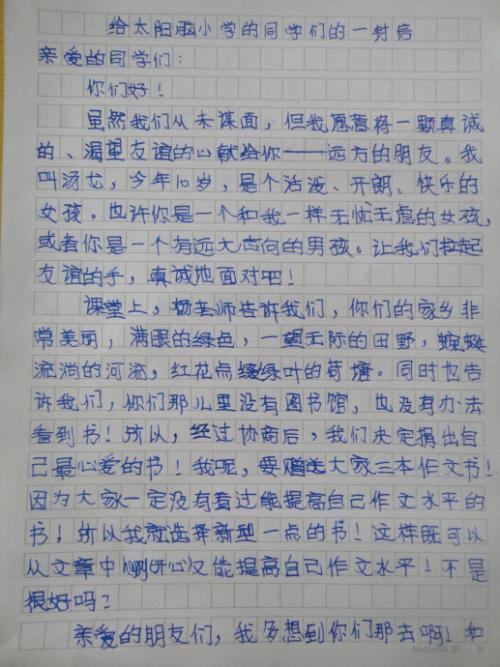 给太阳庙小学的同学们的一封信
亲爱的同学们：
你们好！
虽然我们从未谋面，但我愿意将一颗真诚
的、渴望友谊的心献给你——远方的朋友。我
叫汤尤，今年10岁，是个活泼、开朗、快乐的
女孩。也许你是一个和我一样无忧无虑的女孩，
或者你是一个有远大志向的男孩。让我们拉起
友谊的手，真诚地面对吧！
课堂上，杨老师告诉我们，你们的家乡非
常美丽，满眼的绿色，一望无际的田野，蜿蜒
流淌的河流，红花点缀绿叶的荷塘。同时也告
诉我们，你们那儿里没有图书馆，也没有办法
看到书！所以，经过协商后，我们决定捐出自
己最心爱的书！我呢，要赠送大家三本作文书！
因为大家一定没有看过能提高自己作文水平的
书！所以我就选择新型一点的书！这样既可以
从文章中(开心)又能提高自己作文水平！不是
很好吗？
亲爱的朋友们，我多想到你们那去啊！和